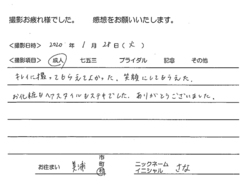 撮影お疲れ様でした。 感想をお願いいたします。
<撮影日時> 2020 年 1 月 28 日 ( 火 )
<撮影項目> 成人 七五三 ブライダル 記念 その他
キレイに撮ってもらえてよかった。笑顔にしてもらえた。
お化粧もヘアスタイルもステキでした。ありがとうございました。
お住まい 美浦 市 町 村 ニックネーム イニシャル さな